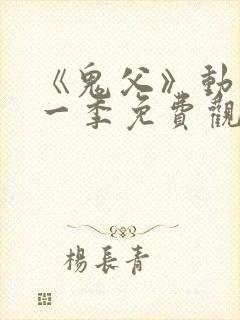 《鬼父》動
一季免費觀
楊長青